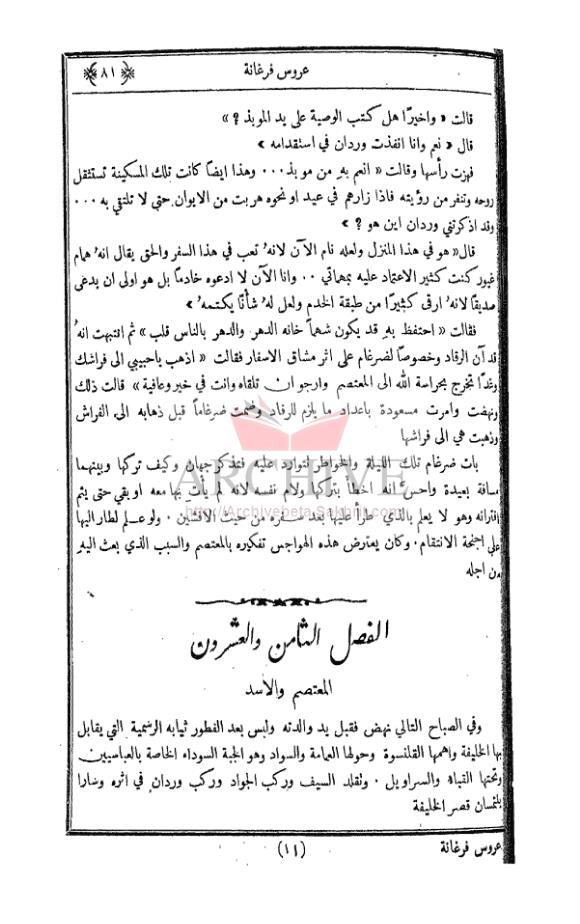 عروس فرغانة
﴿ ٨١ ﴾
قالت « واخيرًا هل كتب الوصية على يد الموبذ ? »
قال « نعم وانا انفذت وردان في استقدامه »
فهزت رأسها وقالت « انعم بهِ من موبذ ٠٠٠ وهذا ايضًا كانت تلك المسكينة تستثقل
روحه وتنفر من رؤيته فاذا زارهم في عيد او نحوه هربت من الايوان حتى لا تلتقي به ٠٠٠
وقد اذكرتني وردان اين هو ? »
قال « هو في هذا المنزل ولعله نام الآن لانهُ تعب في هذا السفر والحق يقال انهُ همام
غيور كنت كثير الاعتماد عليه بمهماتي ٠٠ وانا الآن لا ادعوه خادمًا بل هو اولى ان يدعى
صديقًا لانهُ ارقى كثيرًا من طبقة الخدم ولعل لهُ شأنًا يكتمهُ »
فقالت « احتفظ بهِ قد يكون شهمًا خانه الدهر والدهر بالناس قلب » ثم انتبهت انهُ
قد آن الرقاد وخصوصًا لضرغام على اثر مشاق الاسفار فقالت « اذهب ياحبيبي الى فراشك
وغدًا تخرج بحراسة الله الى المعتصم وارجو ان تلقاه وانت في خير وعافية » قالت ذلك
ونهضت وامرت مسعودة باعداد ما يلزم للرقاد وضمت ضرغامًا قبل ذهابه الى الفراش
وذهبت هي الى فراشها
بات ضرغام تلك الليلة والخواطر تتوارد عليه فتذكر جهان وكيف تركها وبينهما
مسافة بعيدة واحس انه اخطأ بتركها ولام نفسه لانه لم يأت بها معه او يبقى حتى يتم
اقترانه وهو لا يعلم بالذي طرأ عليها بعد سفره من حيث الافشين ٠ ولو علم لطار اليها
على اجنحة الانتقام ٠ وكان يعترض هذه الهواجس تفكيره بالمعتصم والسبب الذي بعث اليهِ
من اجله
الفصل الثامن والعشرون
المعتصم والاسد
وفي الصباح التالي نهض فقبل يد والدته ولبس بعد الفطور ثيابه الرسمية التي يقابل
بها الخليفة واهمها القلنسوة وحولها العمامة والسواد وهو الجبة السوداء الخاصة بالعباسيين
وتحتها القباء والسراويل ٠ وتقلد السيف وركب الجواد وركب وردان في اثره وسارا
يلتمسان قصر الخليفة
عروس فرغانة
(١١)
ARCHIVE
http://Archivebeta.Sakhrit.com